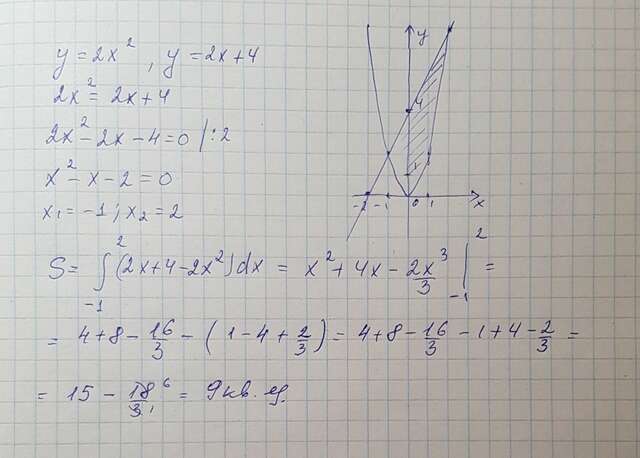 y = 2x², y = 2x+4
2x² = 2x+4
2x² - 2x - 4 = 0 |:2
x² - x - 2 = 0
x₁ = -1; x₂ = 2
y
4
1
-2 -1 0 1 x
S = ∫₋₁² (2x+4-2x²)dx = x² + 4x - 2x³/3 |₋₁² =
= 4+8 - 16/3 - (1-4+2/3) = 4+8 - 16/3 - 1+4 - 2/3 =
= 15 - 18⁶/3₁ = 9 кв. ед.